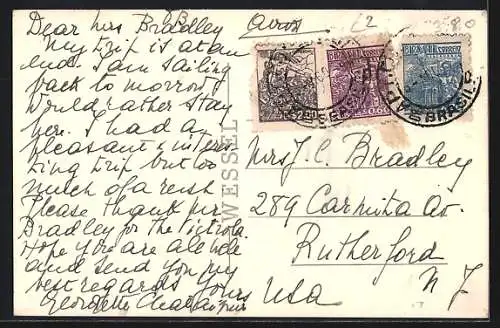 Dear Mrs Bradley
My trip is at an
end. I am sailing
back to morrow
Would rather stay
here. I had a
pleasant & interes-
ting trip but too
much of a rush
Please thank Mr
Bradley for the Victrola.
Hope you are all well
and send you my
best regards Yours
Georgette
WESSEL
BRASIL CORREIO
BRASIL
Mrs J. C. Bradley
289 Carmita Av.
Rutherford
N J
USA